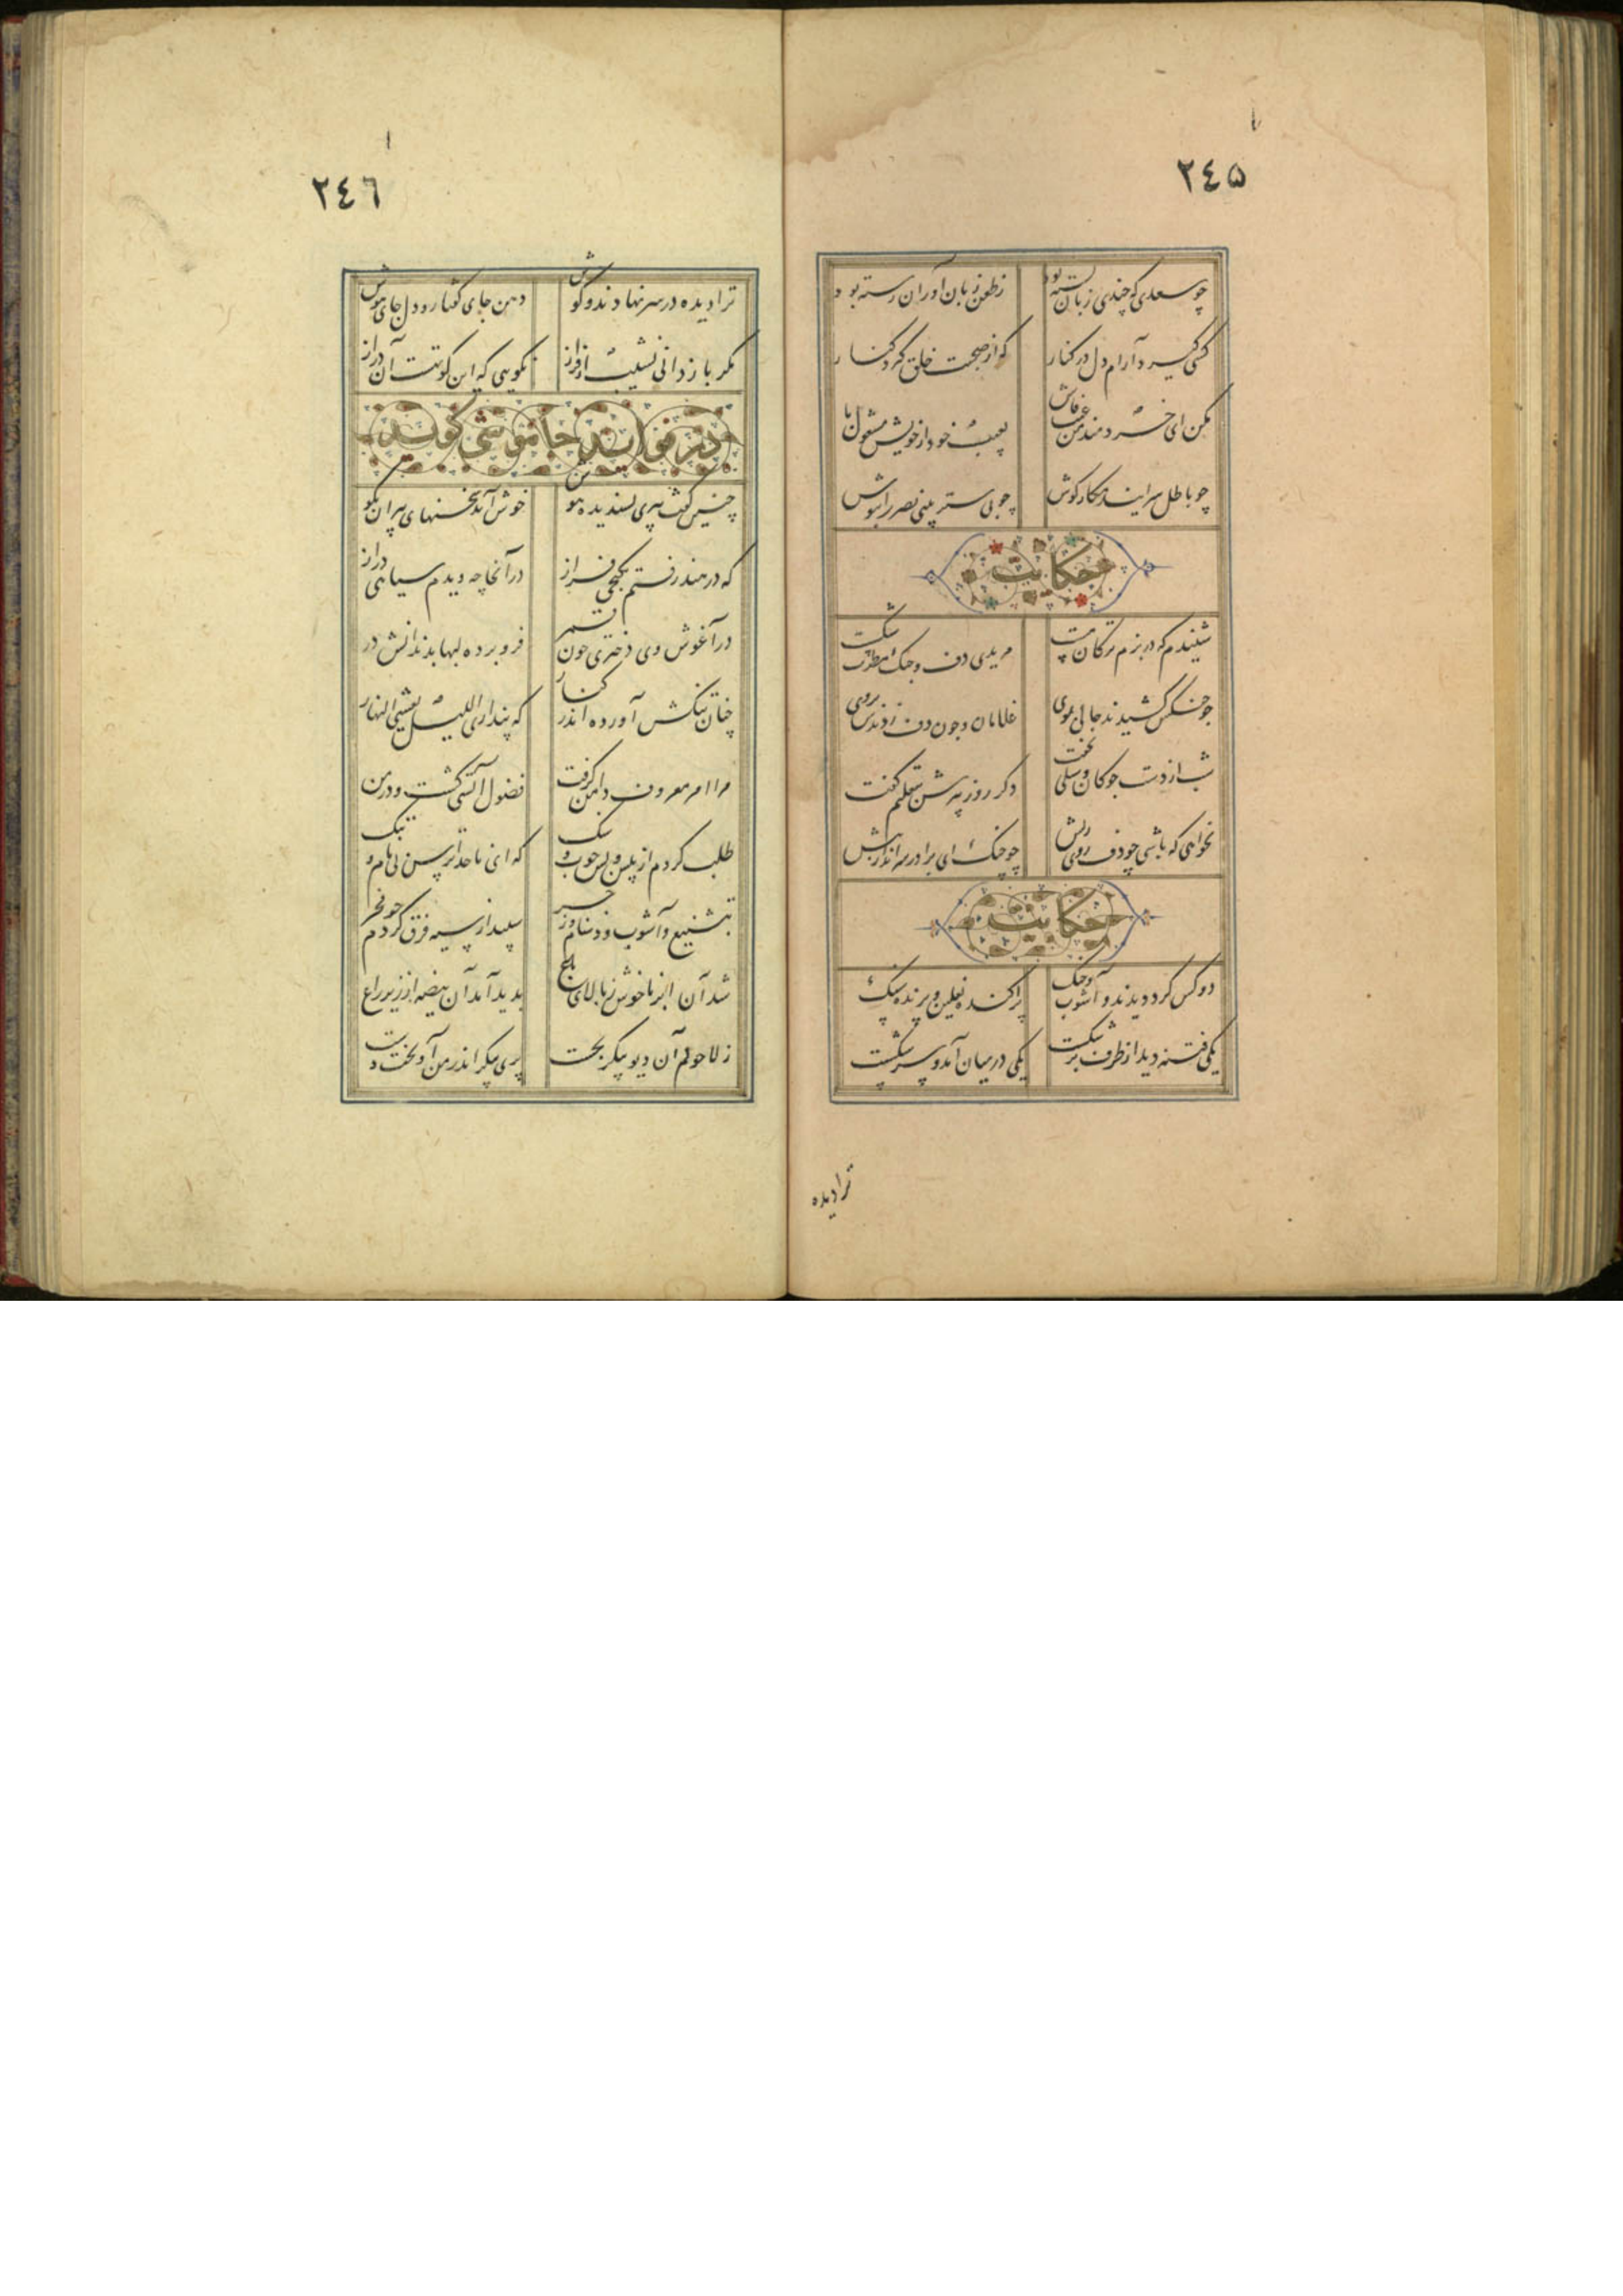 ٢٤٥
چو سعدی که چندی زبان بسته بود
زطعن زبان آوران رسته بود
کسی گیرد آرام دل در کنار
که از صحبت خلق گیرد کنار
مکن ای خردمند من عیب فاش
بعیب خود از خویش مشغول باش
چو باطل سرایند مکمار گوش
چو بی ستر بینی بصر را بپوش
حکایت
شنیدم که در بزم ترکان مست
مریدی دف و چنگ مطرب شکست
چو چنگش کشیدند حالی بموی
غلامان و چون دف زدندش بروی
شب از دست چوکان و سیلی نخفت
دکر روز پیرش بتعلیم کفت
نخواهی که باشی چو دف روی ریش
چو چنک ای برادر سر انداز پیش
حکایت
دو کس کرد دیدند و آشوب و جنک
پراکنده نعلین و پرنده سنک
یکی فتنه دید از طرف بر شکست
یکی در میان آمد و سر شکست
ترا دیده
٢٤٦
ترا دیده در سر نهادند و کوش
دهن جای کفتار و دل جای هوش
مکر باز دانی نشیب از فراز
نکویی که این کوتهست آن دراز
در فواید خاموشی کوید
چنین گفت پیری پسندیده هوش
خوش آید سخنهای پیران بکوش
که در هند رفتم بکنجی فراز
در آنجا چه دیدم سیاهی دراز
در آغوش وی دختری چون قمر
فرو برده لبها بدندانش در
چنان تنکش آورده اندر کنار
که پنداری اللیل یغشی النهار
مرا امر معروف دامن کرفت
فضول آتشی کشت و در من
طلب کردم از پیش و پس چوب و سنک
که ای ناخداترس بی نام و ننک
بتشنیع و آشوب و دشنام و زجر
سپید از سیه فرق کردم چو فجر
شد آن ابر ناخوش ز بالای باغ
بدید آمد آن بیضه از زیر زاغ
زلاحولم آن دیو پیکر بجست
پری پیکر اندر من آویخت دست